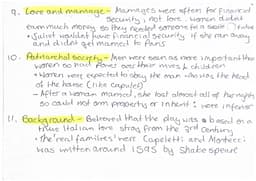 9. Love and marriage - Marriages were often for financial
security, not love. Women didn't
earn much money, so they needed someone for a secure future
• Juliet wouldn't have financial security if she ran away
and didn't get married to Paris
10. Patriarchal society - Men were seen as more important than
women so had power over their wives & children
• Women were expected to obey the man who was the head
of the house (like Capulet)
- After a woman married, she lost almost all of her rights
so could not own property or inherit: were inferior
11. Background - Believed that the play was based on a
true Italian love story from the 3rd century
• the 'real families' were Capeletti and Montecci
was written around 1595 by Shakespeare